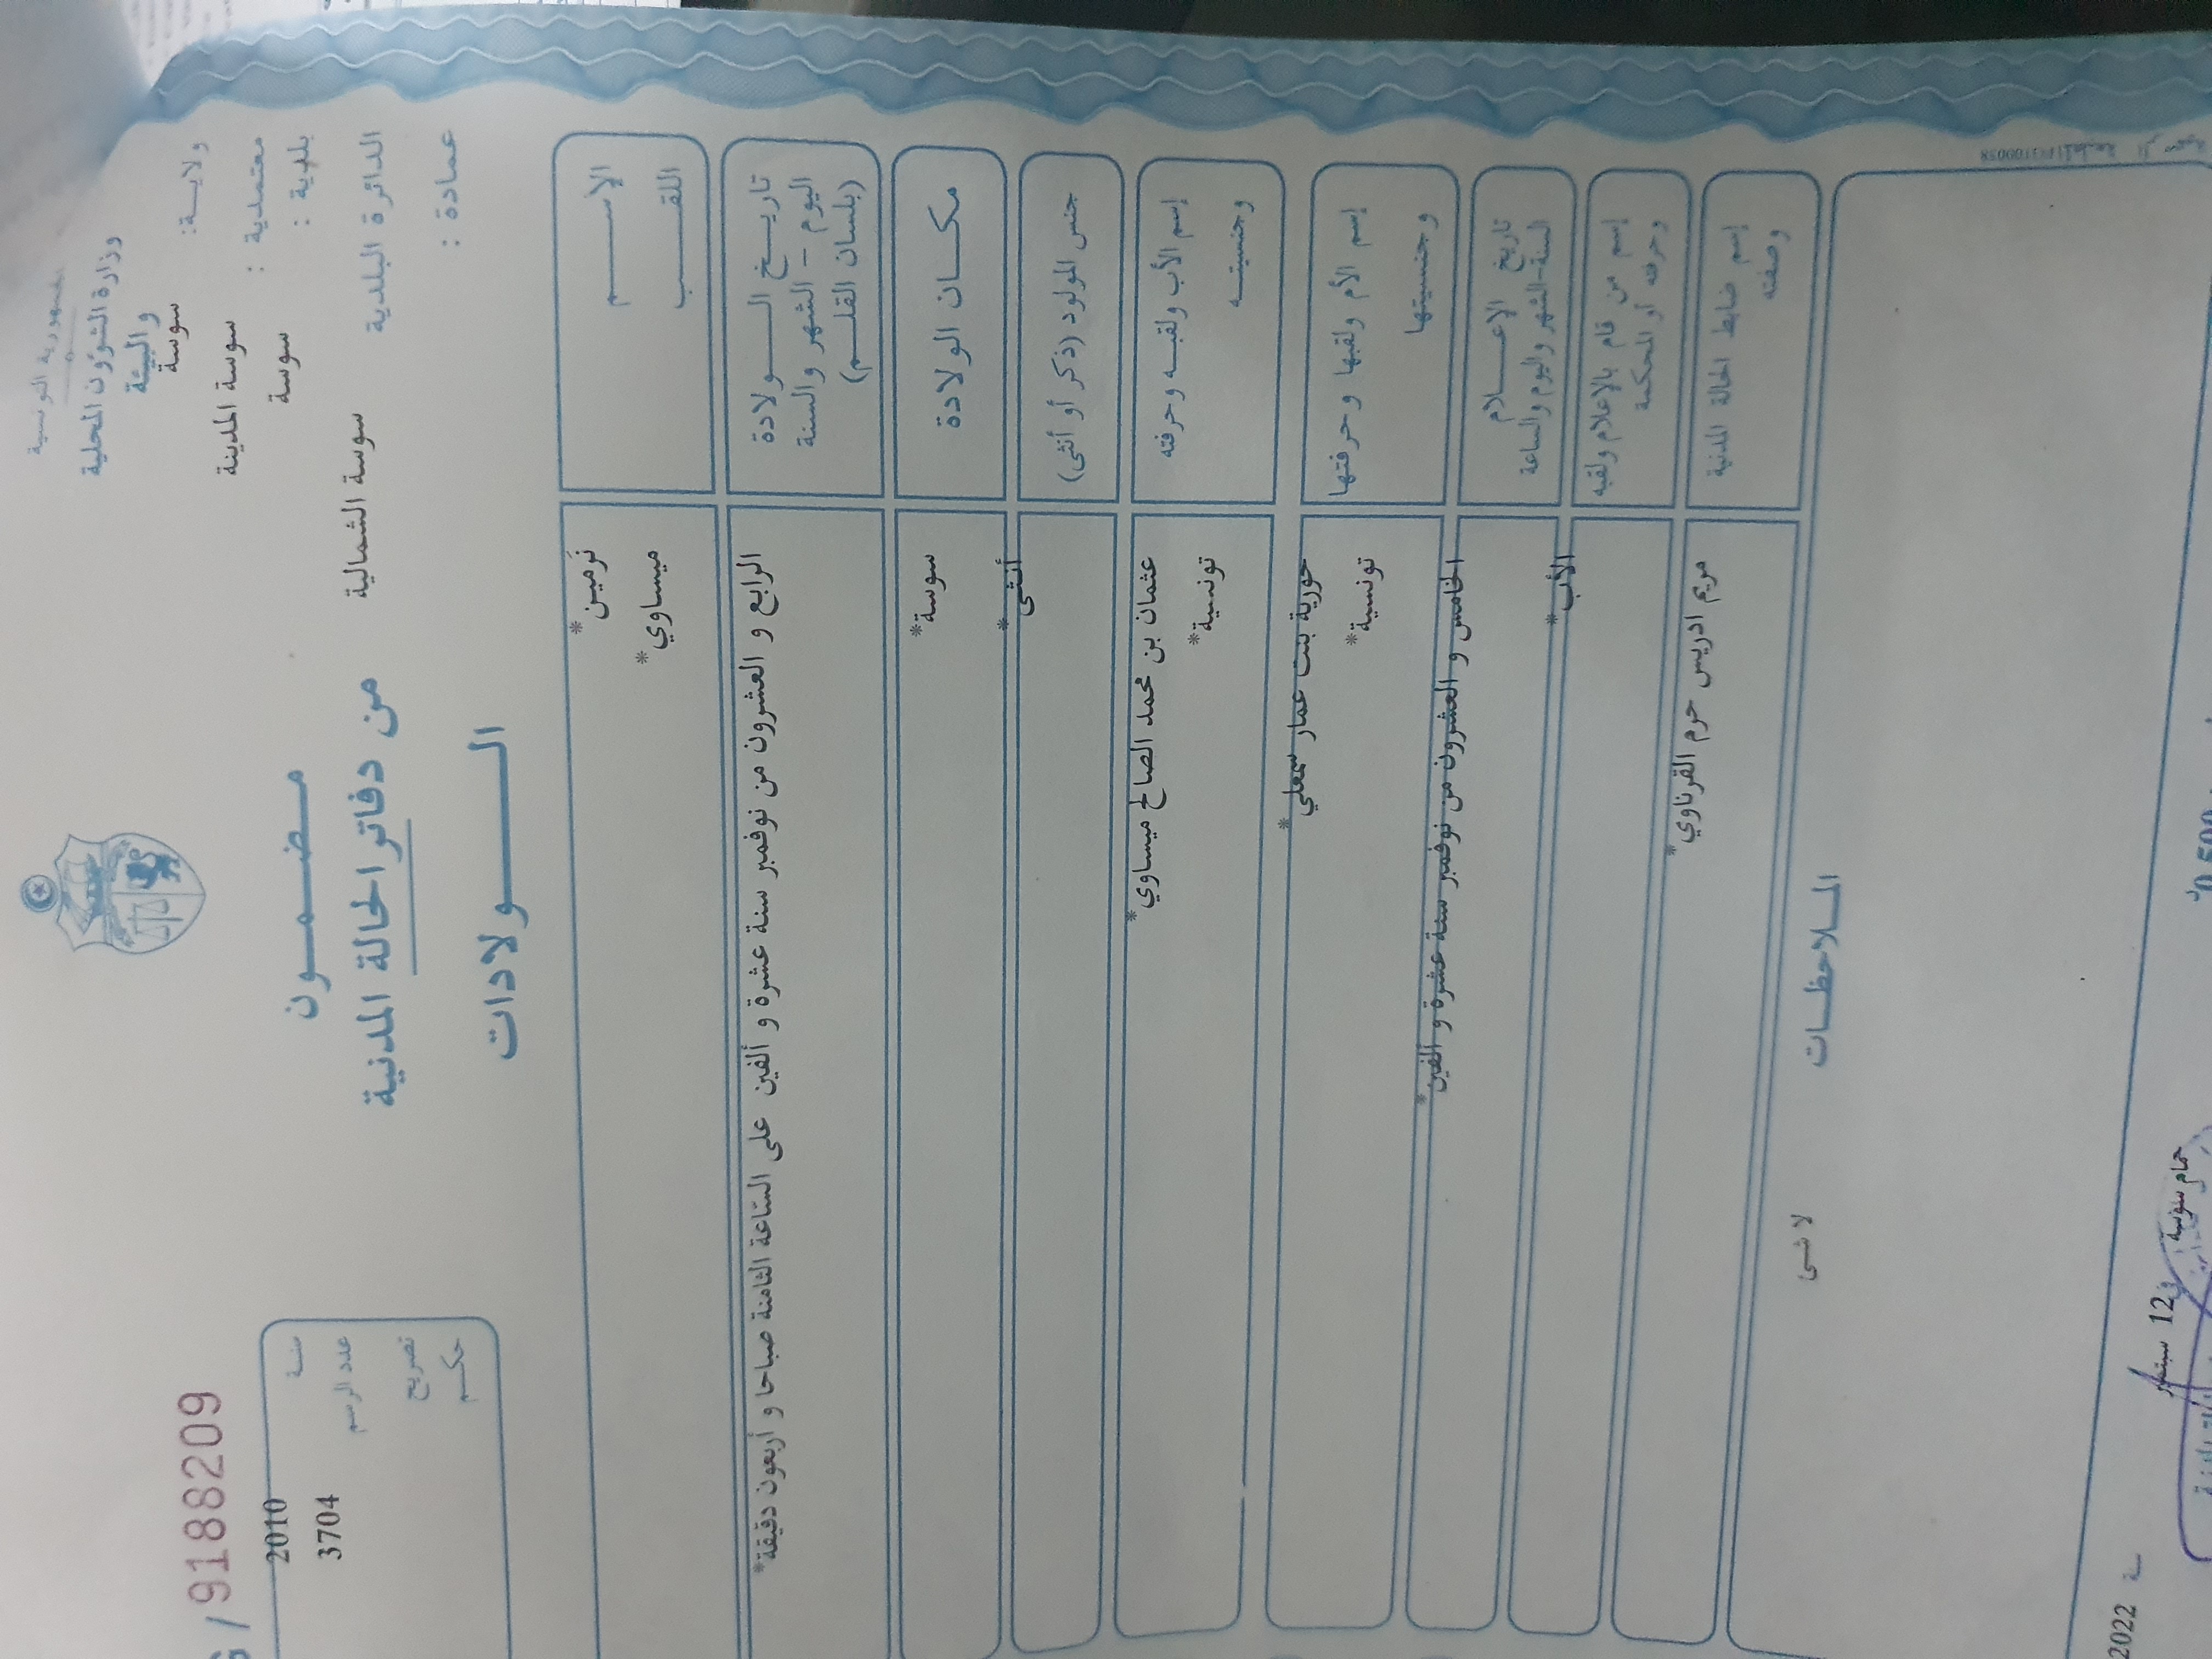 الجمهورية التونسية
وزارة الشؤون المحلية
والبيئة
ولايـــة: سوسة
معتمدية : سوسة المدينة
بلدية : سوسة
الدائرة البلدية سوسة الشمالية
عمادة :
مـضـمـــون
من دفاتر الحالة المدنية
الـــــولادات
G / 9188209
سنـة 2010
عدد الرسم 3704
تصريح
حكــم
الأســـــم نَرمين*
اللقـــــب ميساوي*
تاريــخ الـــولادة
اليوم – الشهر والسنة
(بلسان القلـــم)
الرابع و العشرون من نوفمبر سنة عشرة و ألفين على الساعة الثامنة صباحا و أربعون دقيقة*
مكـــان الولادة سوسة*
جنس المولود (ذكر أو أنثى) أنثى*
إسم الأب ولقبـــه وحرفته عثمان بن محمد الصالح ميساوي*
وجنسيتـــه تونسية*
إسم الأم ولقبها وحرفتها حورية بنت عمار سمعلي*
وجنسيتها تونسية*
تاريخ الإعـــــلام
السنة-الشهر واليوم والساعة
الخامس و العشرون من نوفمبر سنة عشرة و ألفين*
إسم من قام بالإعلام ولقبه
وحرفته أو المحكمة
الأب*
إسم ضابط الحالة المدنية
وصفته
مريم ادريس حرم القرناوي*
المــلاحظــات
لا شى
حمام سوسة في 12 سبتمبر
ـة 2022